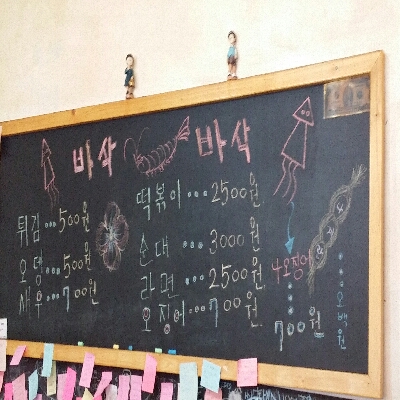 바삭 바삭
떡볶이...2500원
튀김...500원
순대...3000원
오뎅...500원
라면...2500원
새우...700원
오징어...700원
오징어
700원
오백원